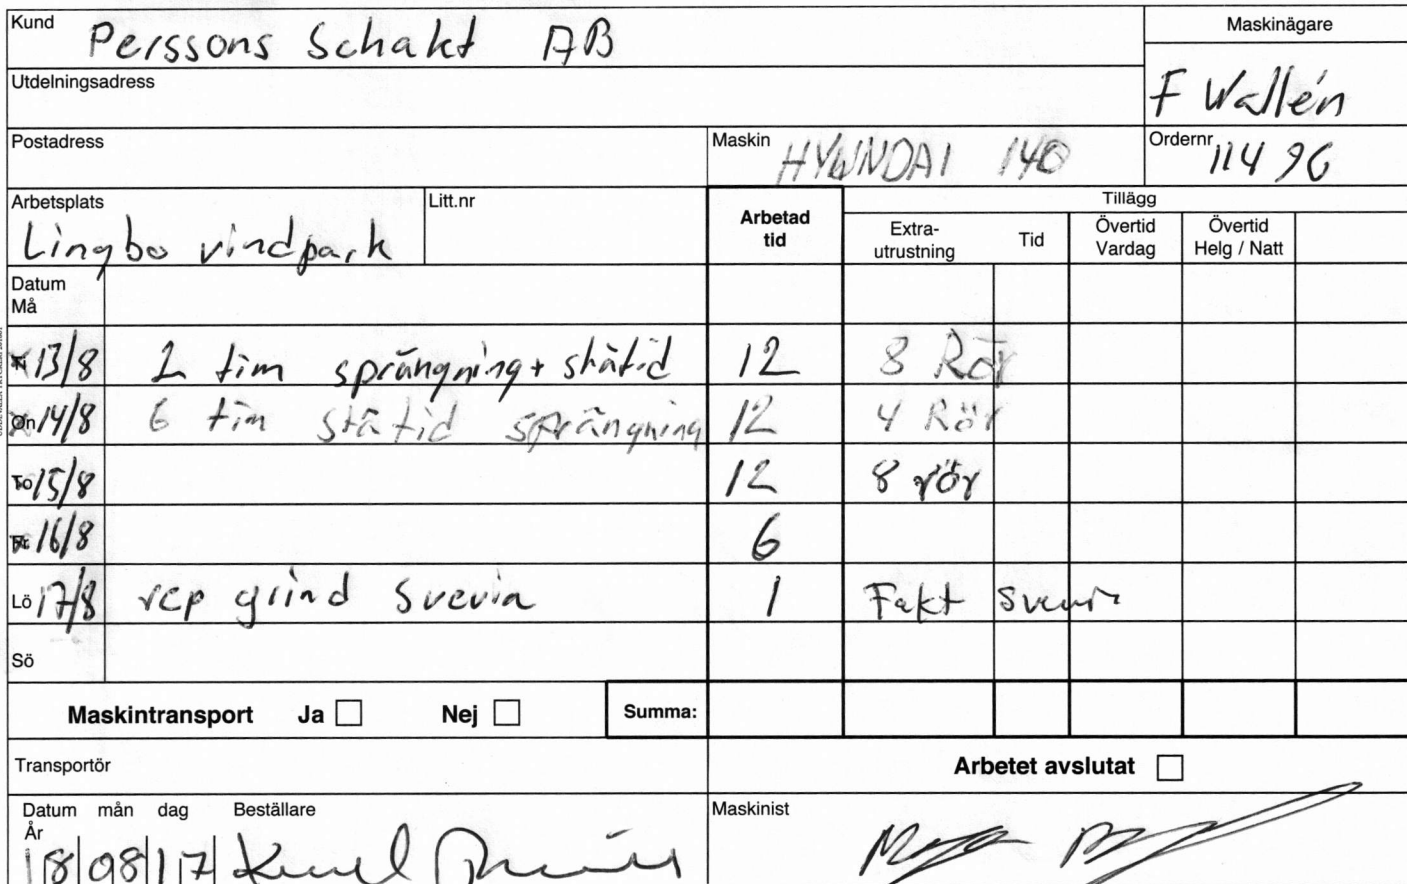 Kund Perssons Schakt AB
Maskinägare
Utdelningsadress
F Wallén
Postadress
Maskin HYUNDAI 140
Ordernr 114 96
Arbetsplats
Litt.nr
Lingbo vindpark
Arbetad tid
Tillägg
Extra-utrustning
Tid
Övertid Vardag
Övertid Helg / Natt
Datum
Må
Ti 13/8 2 tim sprängning + ståtid 12 8 Rör
On 14/8 6 tim ståtid sprängning 12 4 Rör
To 15/8 12 8 rör
Fr 16/8 6
Lö 17/8 rep grind Svevia 1 Fakt Svevia
Sö
Maskintransport Ja Nej Summa:
Transportör
Arbetet avslutat
Datum mån dag Beställare
Maskinist
År
18 08 17